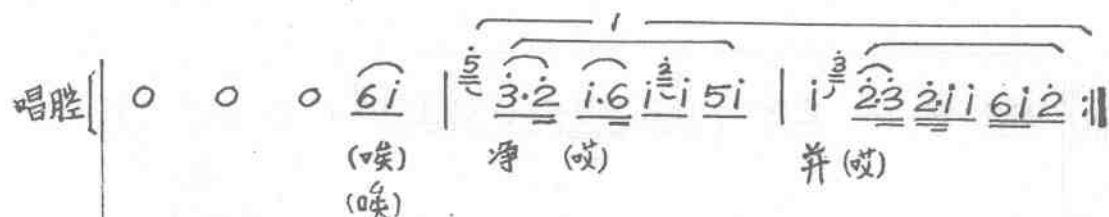 1
唱腔 0 0 0 6i | 5 3·2 i·6 i 2 i 5i | i 3 2·3 2·i i 6i2 :‖
(唉) 净 (哎) 并 (哎)
(唤)